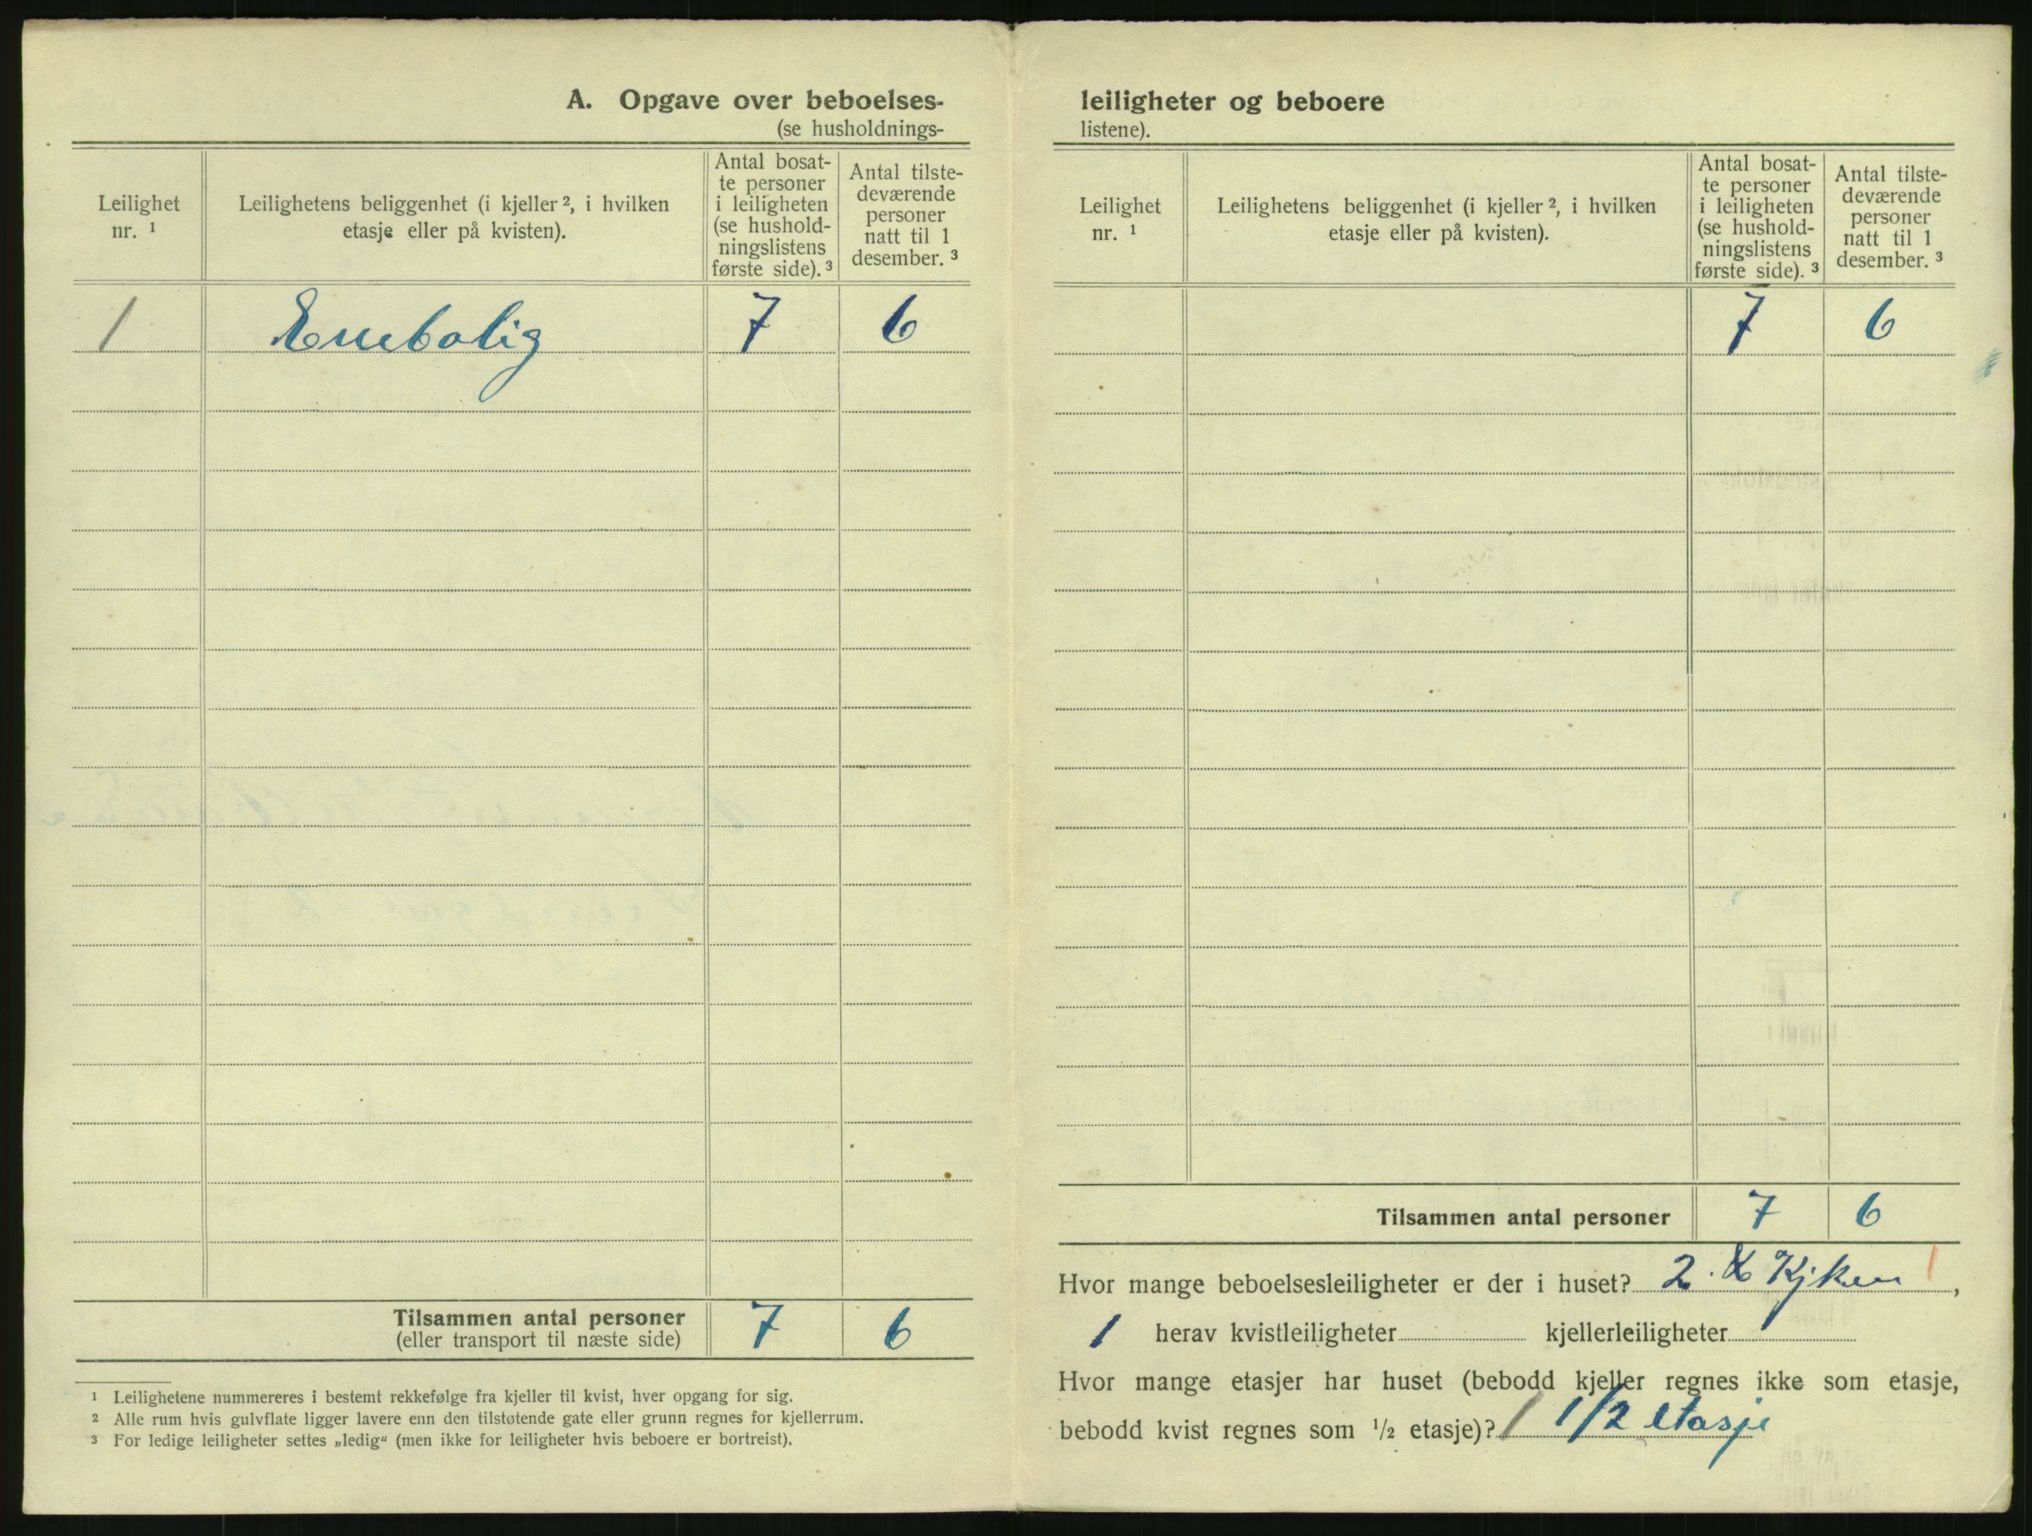 A. Opgave over beboelses-
(se husholdnings-
Leilighet
nr. ¹
Leilighetens beliggenhet (i kjeller ², i hvilken
etasje eller på kvisten).
Antal bosat-
te personer
i leiligheten
(se hushold-
ningslistens
første side). ³
Antal tilste-
deværende
personer
natt til 1
desember. ³
1 Enebolig 7 6
Tilsammen antal personer 7 6
(eller transport til næste side)
¹ Leilighetene nummereres i bestemt rekkefølge fra kjeller til kvist, hver opgang for sig.
² Alle rum hvis gulvflate ligger lavere enn den tilstøtende gate eller grunn regnes for kjellerrum.
³ For ledige leiligheter settes „ledig“ (men ikke for leiligheter hvis beboere er bortreist).
leiligheter og beboere
listene).
Leilighet
nr. ¹
Leilighetens beliggenhet (i kjeller ², i hvilken
etasje eller på kvisten).
Antal bosat-
te personer
i leiligheten
(se hushold-
ningslistens
første side). ³
Antal tilste-
deværende
personer
natt til 1
desember. ³
7 6
Tilsammen antal personer 7 6
Hvor mange beboelsesleiligheter er der i huset? 2. Kjken 1,
1 herav kvistleiligheter kjellerleiligheter
Hvor mange etasjer har huset (bebodd kjeller regnes ikke som etasje,
bebodd kvist regnes som ¹/₂ etasje)? 1 1/2 etasje